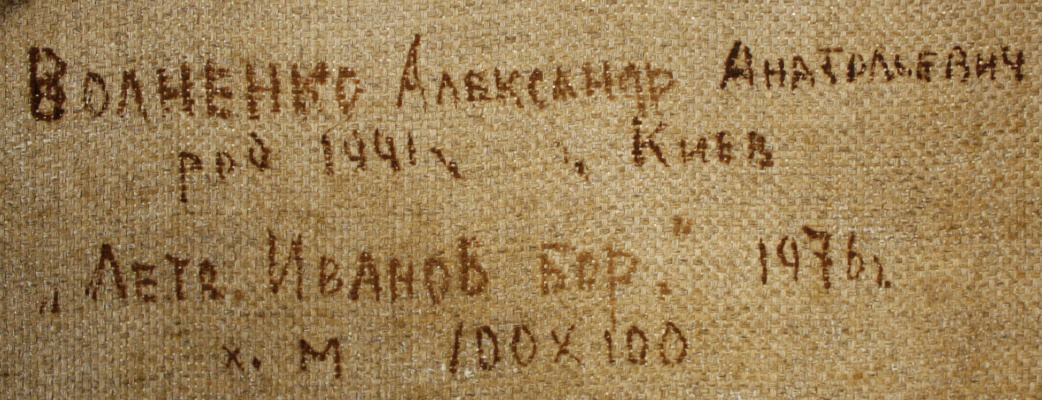 Волненко Александр Анатольевич
род 1941г., Киев
„Лето. Иванов бор.” 1976г.
х. м 100х100